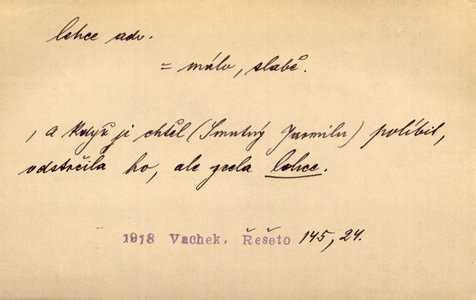 lehce adv.
= málo, slabě.
, a když ji chtěl (Smutný Jarmilu) políbit,
odstrčila ho, ale zcela lehce.
1918 Vachek, Řešeto 145, 24.